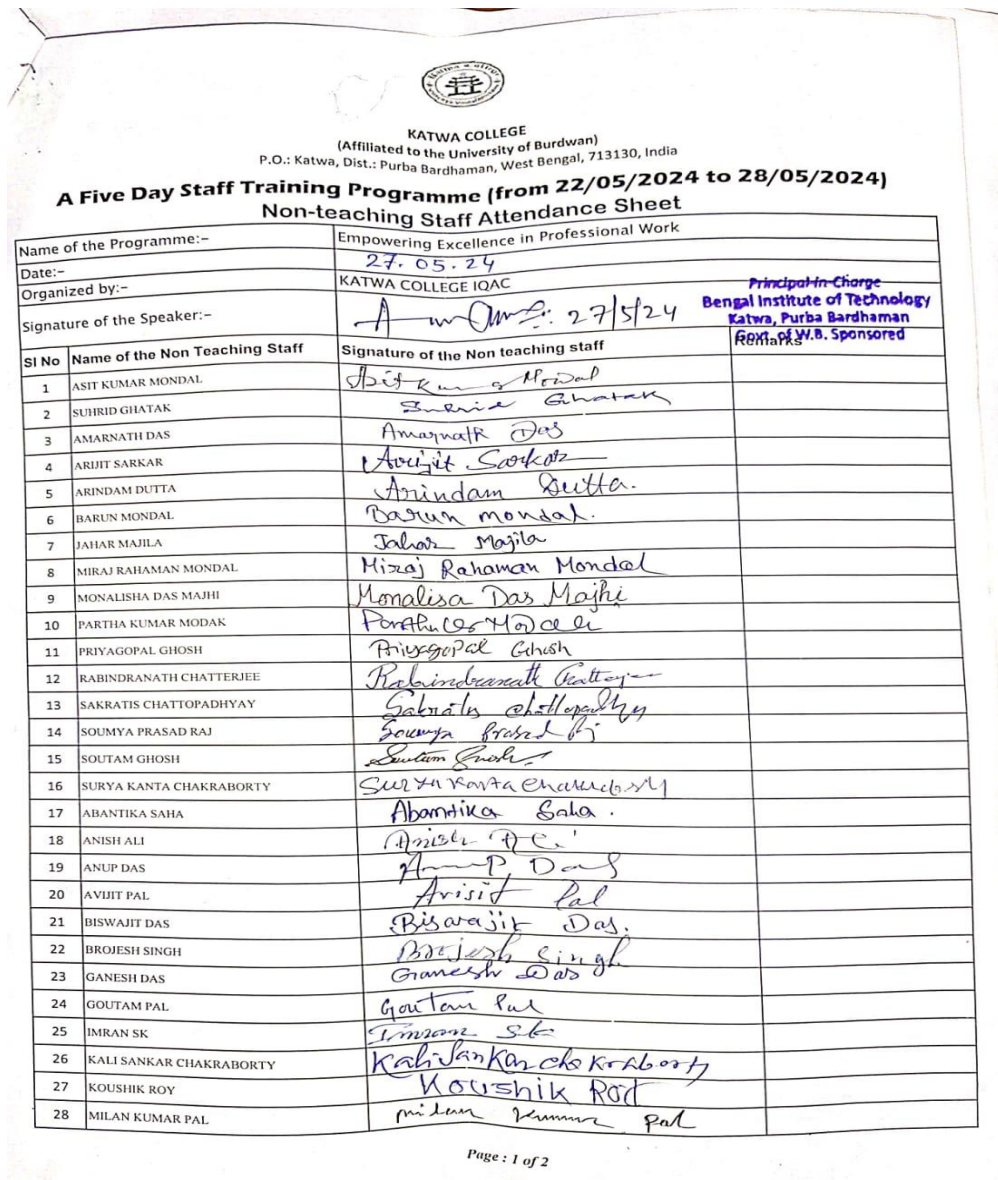 KATWA COLLEGE
(Affiliated to the University of Burdwan)
P.O.: Katwa, Dist.: Purba Bardhaman, West Bengal, 713130, India
A Five Day Staff Training Programme (from 22/05/2024 to 28/05/2024)
Non-teaching Staff Attendance Sheet
Name of the Programme:– Empowering Excellence in Professional Work
Date:– 27.05.24
Organized by:– KATWA COLLEGE IQAC
Signature of the Speaker:– 27/5/24
Principal-in-Charge
Bengal Institute of Technology
Katwa, Purba Bardhaman
Govt. of W.B. Sponsored
Sl No Name of the Non Teaching Staff Signature of the Non teaching staff Remarks
1 ASIT KUMAR MONDAL Asit Mondal
2 SUHRID GHATAK Suhrid Ghatak
3 AMARNATH DAS Amarnath Das
4 ARIJIT SARKAR Arijit Sarkar
5 ARINDAM DUTTA Arindam Dutta.
6 BARUN MONDAL Barun mondal.
7 JAHAR MAJILA Jahar Majila
8 MIRAJ RAHAMAN MONDAL Miraj Rahaman Mondal
9 MONALISHA DAS MAJHI Monalisa Das Majhi
10 PARTHA KUMAR MODAK
11 PRIYAGOPAL GHOSH Priyagopal Ghosh
12 RABINDRANATH CHATTERJEE Rabindranath Chatterjee
13 SAKRATIS CHATTOPADHYAY Sakratis Chattopadhyay
14 SOUMYA PRASAD RAJ Soumya Prasad Raj
15 SOUTAM GHOSH Soutam Ghosh
16 SURYA KANTA CHAKRABORTY Surya Kanta Chakraborty
17 ABANTIKA SAHA Abantika Saha.
18 ANISH ALI Anish Ali
19 ANUP DAS Anup Das
20 AVIJIT PAL Avijit Pal
21 BISWAJIT DAS Biswajit Das.
22 BROJESH SINGH Brojesh Singh
23 GANESH DAS Ganesh Das
24 GOUTAM PAL Goutam Pal
25 IMRAN SK Imran Sk
26 KALI SANKAR CHAKRABORTY Kali Sankar chakraborty
27 KOUSHIK ROY Koushik Roy
28 MILAN KUMAR PAL milan Kumar Pal
Page : 1 of 2